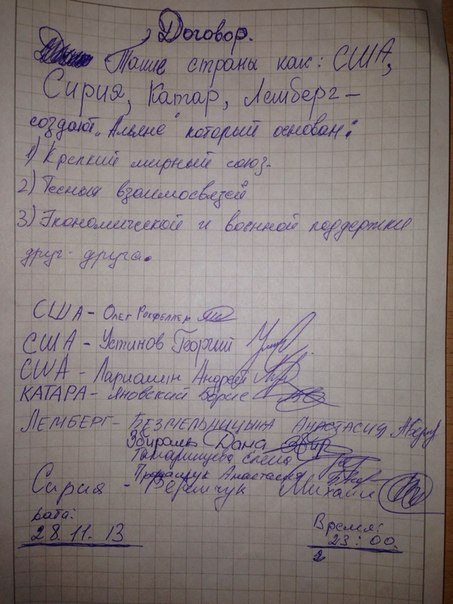 Договор.
Такие страны как: США,
Сирия, Катар, Лемберг –
создают "Альянс" который основан:
1) Крепкий мирный союз.
2) Тесных взаимосвязей
3) Экономической и военной поддержке
друг - друга.
США - Олег Рокфеллер
США - Устинов Георгий
США - Ларионин Андрей
КАТАРА - Яновский Борис
ЛЕМБЕРГ - АНАСТАСИЯ
Збираль Дана
Елена
Анастасия
Сирия - Михаил
Дата:
28.11.13
Время:
23:00.
2